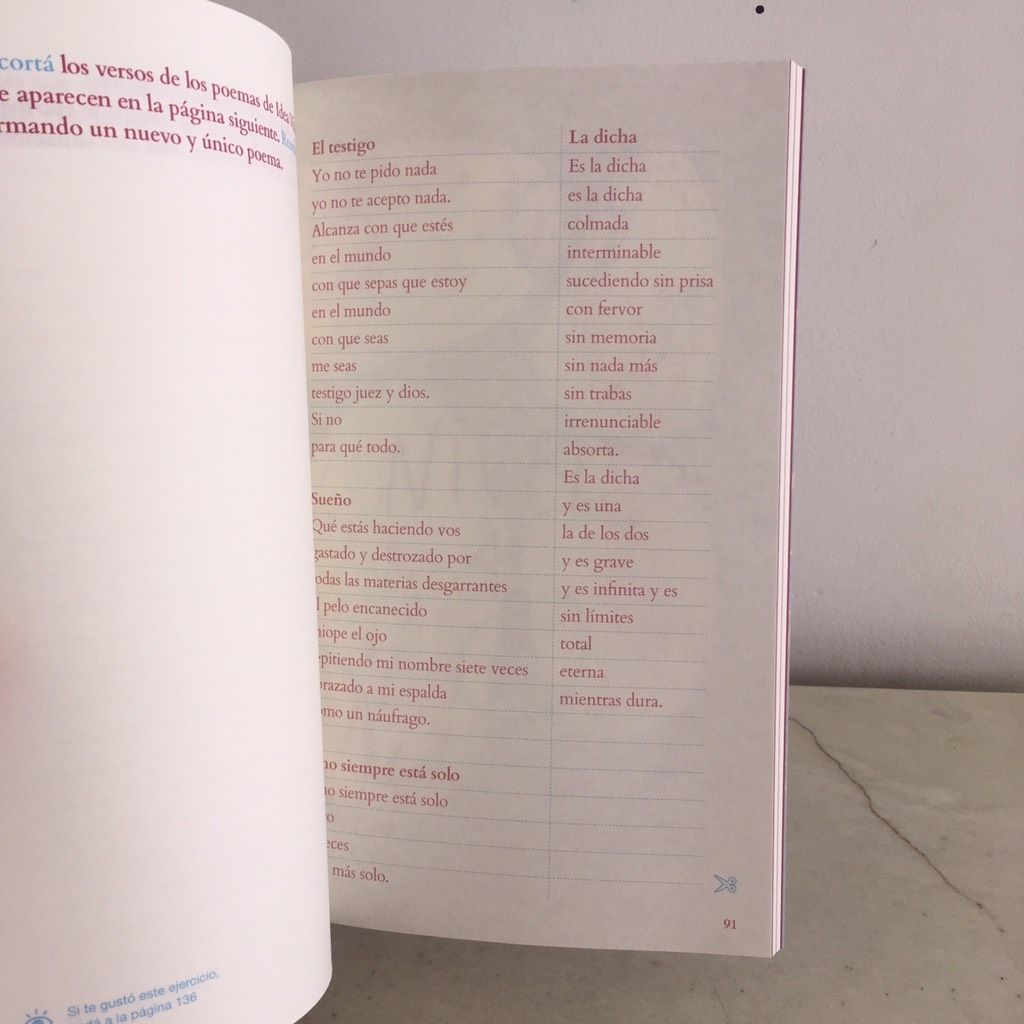 cortá los versos de los poemas de Idea
aparecen en la página siguiente.
un nuevo y único poema.
Si te gustó este ejercicio,
a la página 136
El testigo
Yo no te pido nada
yo no te acepto nada.
Alcanza con que estés
en el mundo
con que sepas que estoy
en el mundo
con que seas
me seas
testigo juez y dios.
Si no
para qué todo.
Sueño
Qué estás haciendo vos
gastado y destrozado por
las materias desgarrantes
pelo encanecido
el ojo
mi nombre siete veces
a mi espalda
un náufrago.
siempre está solo
siempre está solo
más solo.
La dicha
Es la dicha
es la dicha
colmada
interminable
sucediendo sin prisa
con fervor
sin memoria
sin nada más
sin trabas
irrenunciable
absorta.
Es la dicha
y es una
la de los dos
y es grave
y es infinita y es
sin límites
total
eterna
mientras dura.
91